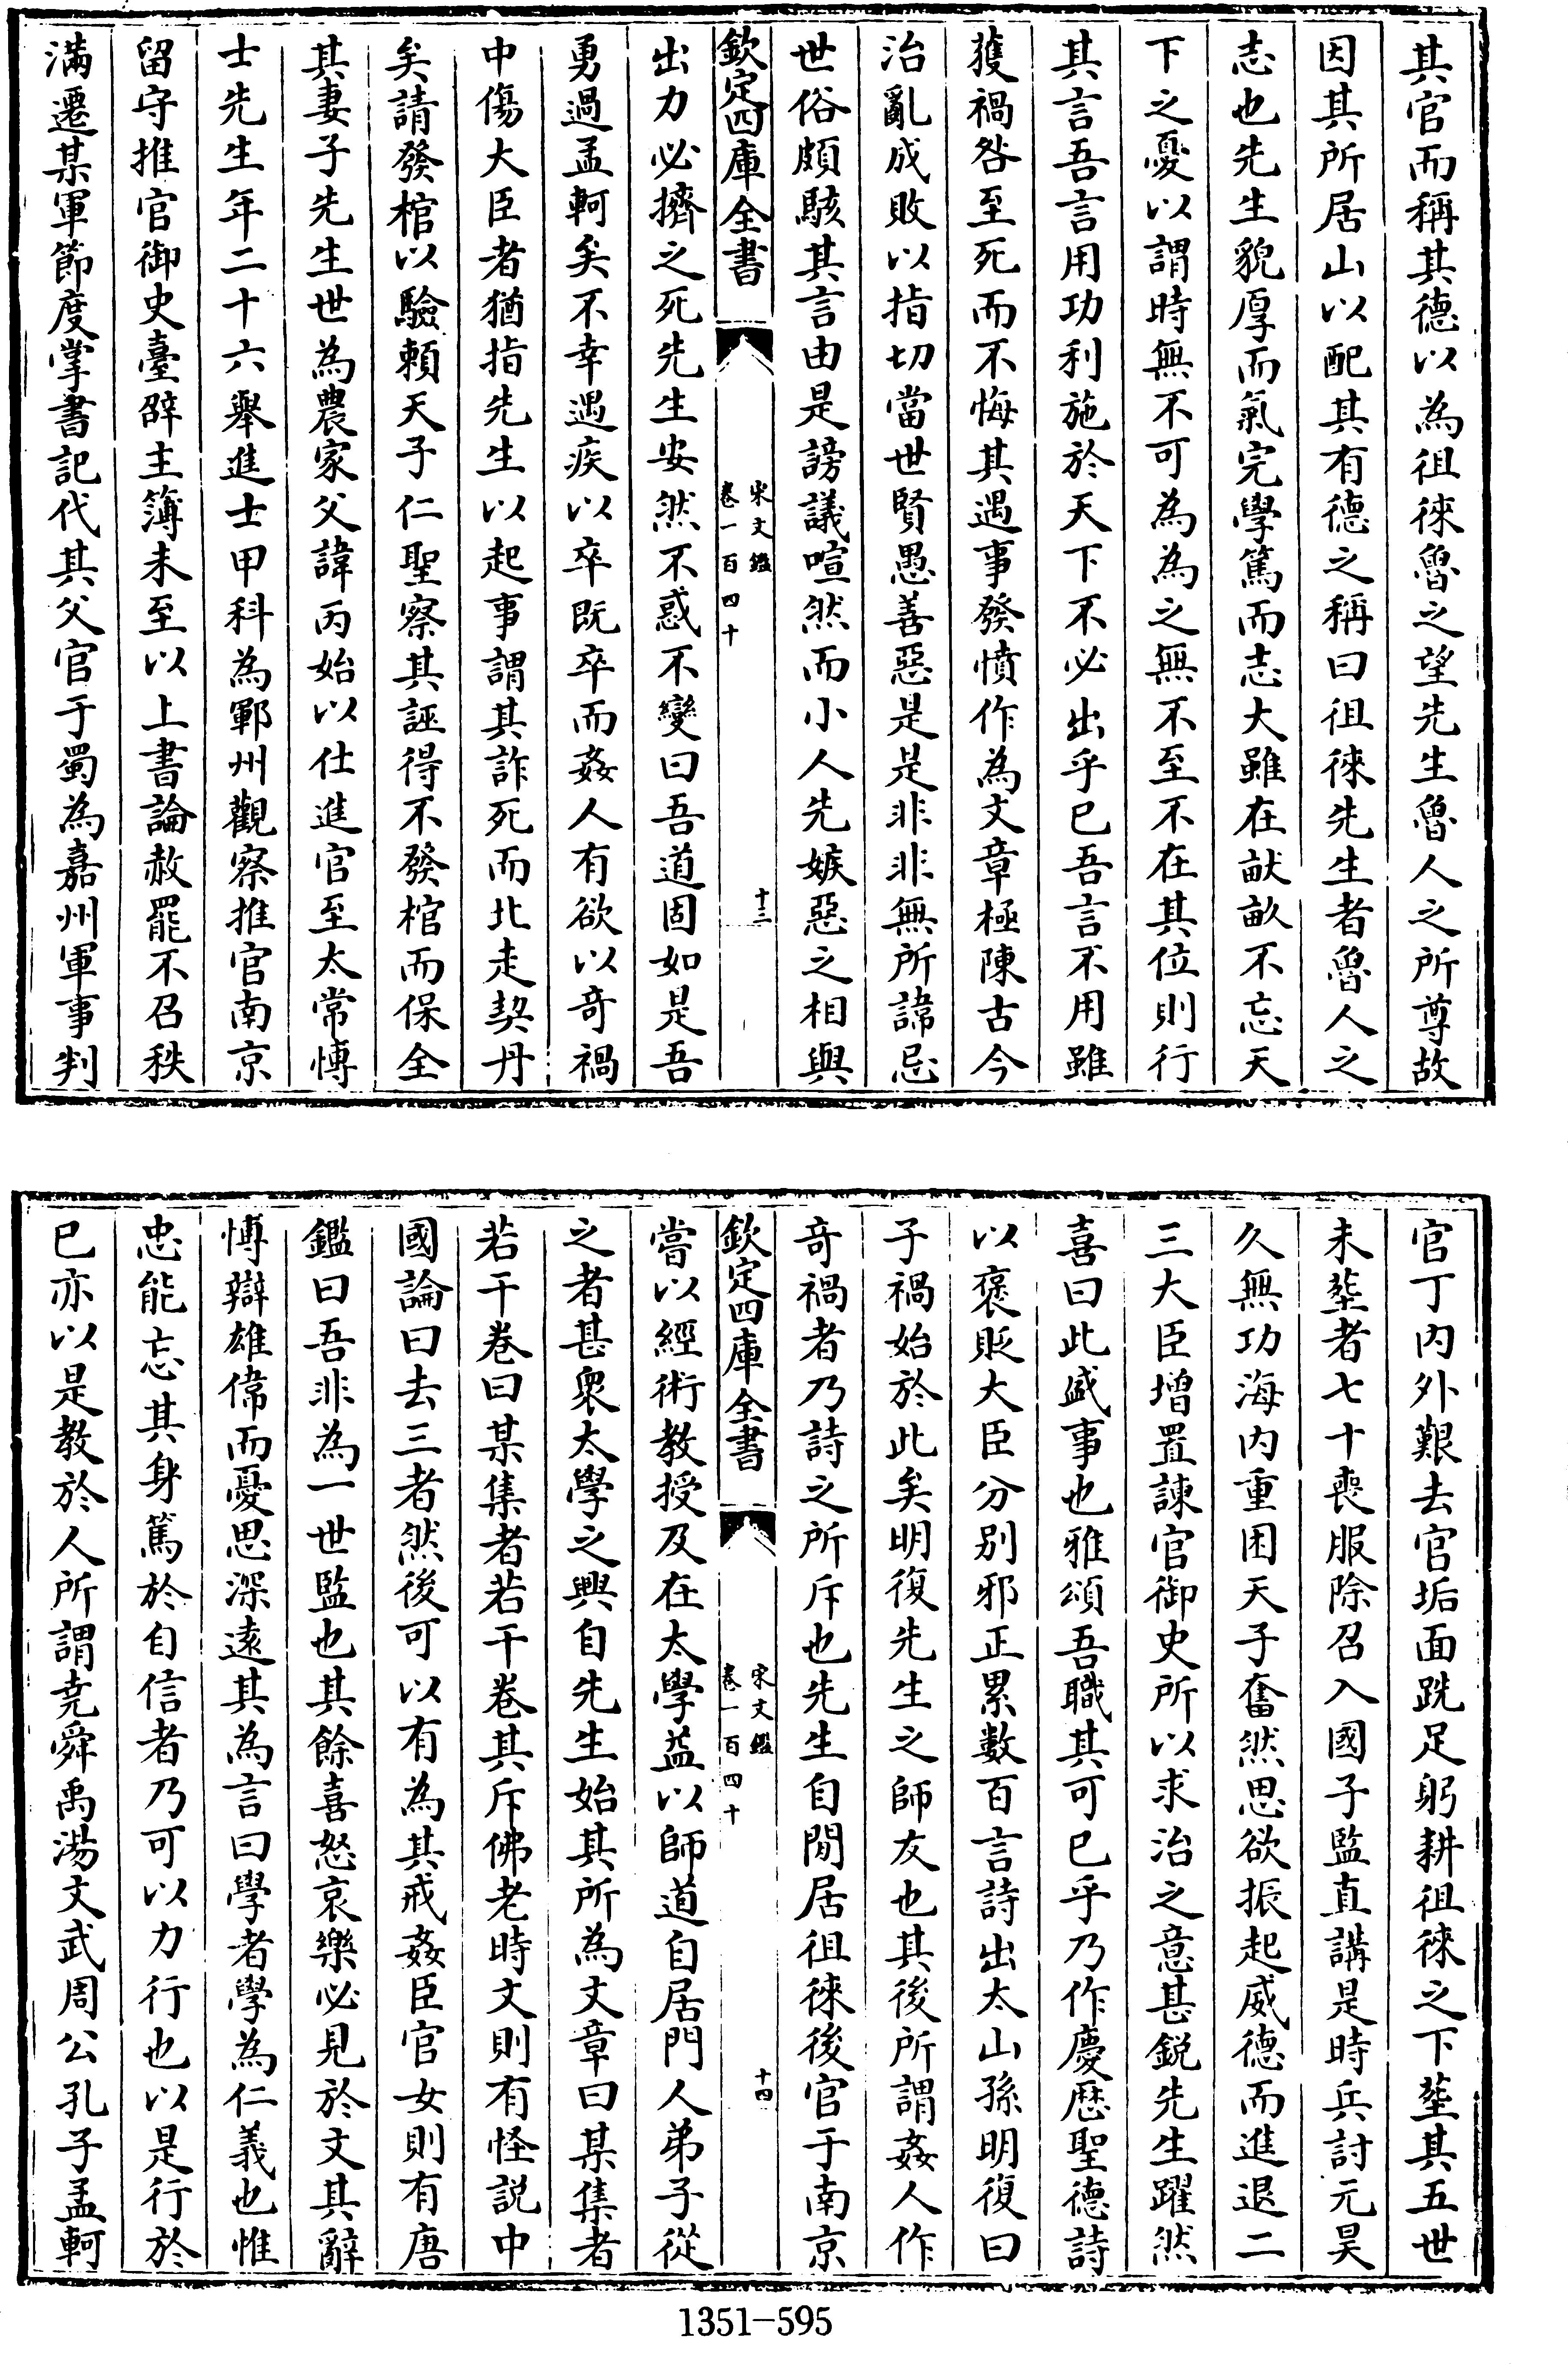 其官而稱其德以為徂徠魯之望先生魯人之所尊故
因其所居山以配其有德之稱曰徂徠先生者魯人之
志也先生貌厚而氣完學篤而志大雖在畎畝不忘天
下之憂以謂時無不可為為之無不至不在其位則行
其言吾言用功利施於天下不必出乎已吾言不用雖
獲禍咎至死而不悔其遇事發憤作為文章極陳古今
治亂成敗以指切當世賢愚善惡是是非非無所諱忌
世俗頗駭其言由是謗議喧然而小人先嫉惡之相與
欽定四庫全書
宋文鑑
卷一百四十
十三
出力必擠之死先生安然不惑不變曰吾道固如是吾
勇過孟軻矣不幸遇疾以卒既卒而姦人有欲以奇禍
中傷大臣者猶指先生以起事謂其詐死而北走契丹
矣請發棺以驗賴天子仁聖察其誣得不發棺而保全
其妻子先生世為農家父諱丙始以仕進官至太常博
士先生年二十六舉進士甲科為鄆州觀察推官南京
留守推官御史臺辟主簿未至以上書論赦罷不召秩
滿遷某軍節度掌書記代其父官于蜀為嘉州軍事判
官丁内外艱去官垢面跣足躬耕徂徠之下塟其五世
未塟者七十喪服除召入國子監直講是時兵討元昊
久無功海内重困天子奮然思欲振起威德而進退二
三大臣增置諫官御史所以求治之意甚鋭先生躍然
喜曰此盛事也雅頌吾職其可已乎乃作慶歷聖德詩
以褒貶大臣分别邪正累數百言詩出太山孫明復曰
子禍始於此矣明復先生之師友也其後所謂姦人作
奇禍者乃詩之所斥也先生自閒居徂徠後官于南京
欽定四庫全書
宋文鑑
卷一百四十
十四
嘗以經術教授及在太學益以師道自居門人弟子從
之者甚衆太學之興自先生始其所為文章曰某集者
若干卷曰某集者若干卷其斥佛老時文則有怪説中
國論曰去三者然後可以有為其戒姦臣官女則有唐
鑑曰吾非為一世監也其餘喜怒哀樂必見於文其辭
博辯雄偉而憂思深遠其為言曰學者學為仁義也惟
忠能忘其身篤於自信者乃可以力行也以是行於
已亦以是教於人所謂堯舜禹湯文武周公孔子孟軻
1351-595